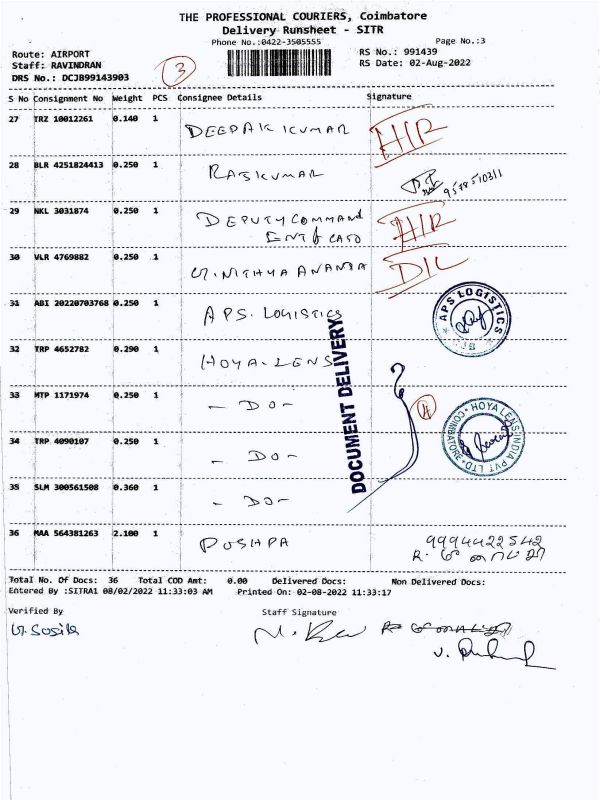 THE PROFESSIONAL COURIERS, Coimbatore
Delivery Runsheet - SITR
Phone No.:0422-3505555 Page No.:3
Route: AIRPORT RS No.: 991439
Staff: RAVINDRAN RS Date: 02-Aug-2022
DRS No.: DCJB99143903
3
S No Consignment No Weight PCS Consignee Details Signature
27 TRZ 10012261 0.140 1 DEEPAK KUMAR H/R
28 BLR 4251824413 0.250 1 RAJKUMAR 9578510311
29 NKL 3031874 0.250 1 DEPUTY COMMAND H/R
ENT of CASO
30 VLR 4769882 0.250 1 V. NITHYA ANANDA D/L
31 ABI 20220703768 0.250 1 APS. LOGISTICS
APS LOGISTICS
32 TRP 4652782 0.290 1 HOYA-LENS
DOCUMENT DELIVERY
33 MTP 1171974 0.250 1 - DO - 4
HOYA LENS INDIA PVT LTD. COIMBATORE
34 TRP 4090107 0.250 1 - DO -
35 SLM 300561508 0.360 1 - DO -
36 MAA 564381263 2.100 1 PUSHPA 9994422542
Total No. Of Docs: 36 Total COD Amt: 0.00 Delivered Docs: Non Delivered Docs:
Entered By :SITRA1 08/02/2022 11:33:03 AM Printed On: 02-08-2022 11:33:17
Verified By Staff Signature